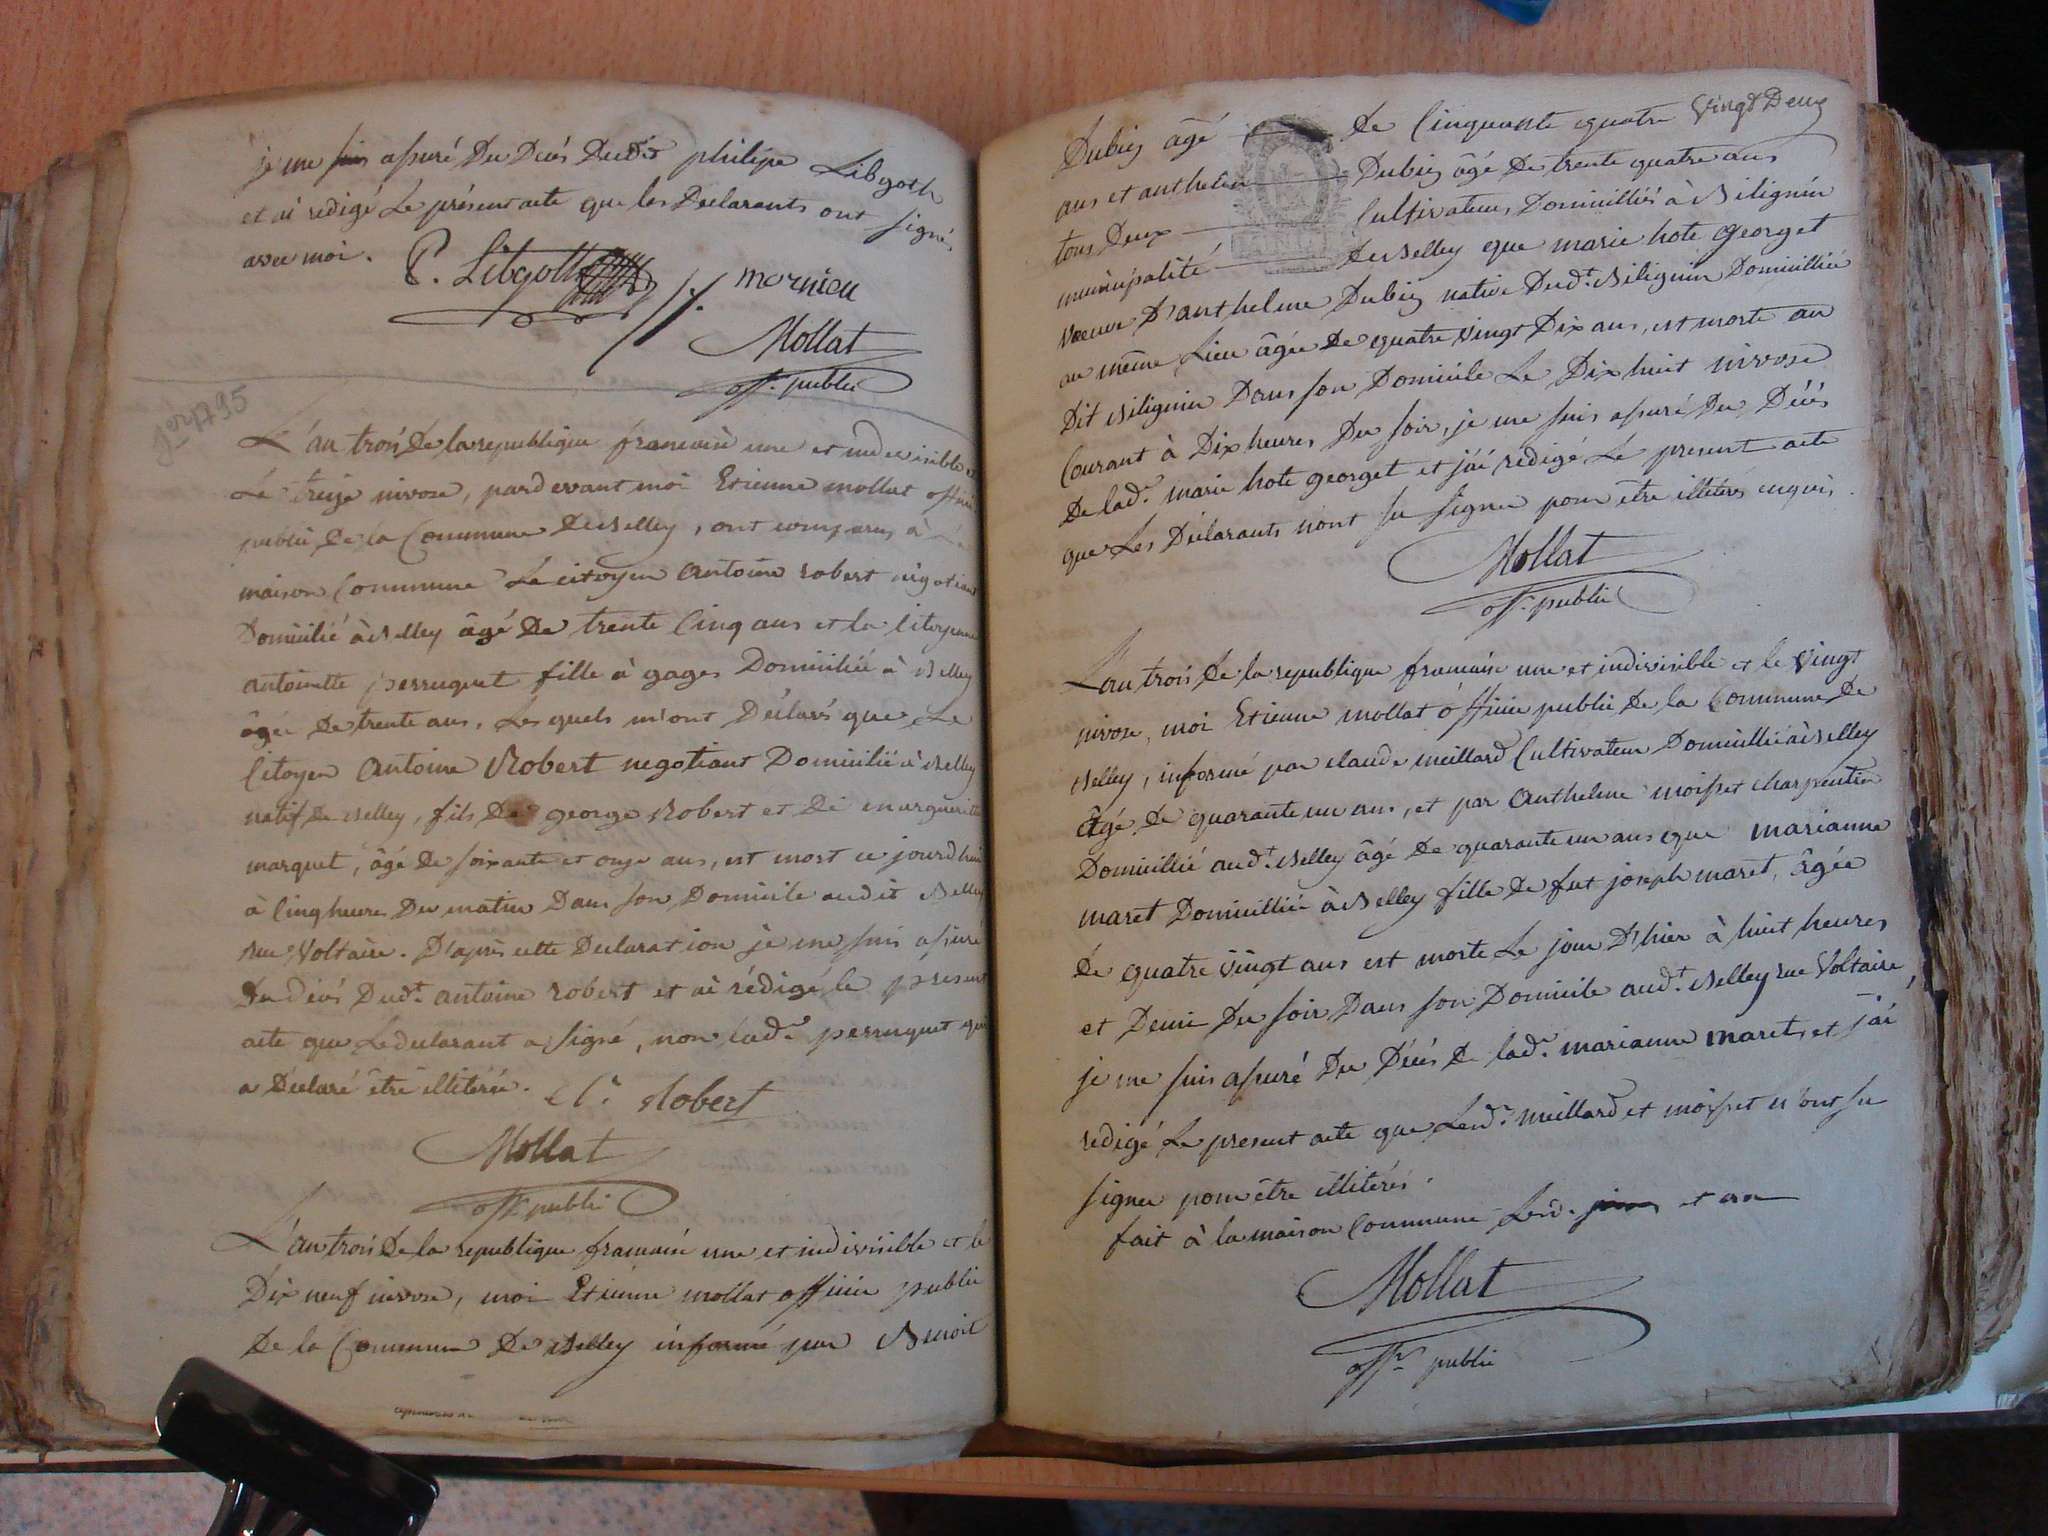 je me suis assuré du décès dudit philipe Libgoth
et ai redigé le présent acte que les déclarants ont signé
avec moi. P. Libgott
mornieu
Mollat
off. public
1er 1795
L'an trois de la republique francaise une et indivisible et
le treize nivose, pardevant moi Etienne mollat officier
public de la Commune de Belley, ont comparus à la
maison Commune le citoyen Antoine robert négotiant
Domicilié à Belley âgé de trente cinq ans et la citoyenne
antoinette perruquet fille à gages Domiciliée à Belley
âgée de trente ans, lesquels m'ont déclaré que le
Citoyen Antoine Robert negotiant Domicilié à Belley
natif de Belley, fils de george Robert et de marguerite
marquet, âgé de soixante et onze ans, est mort ce jourdhui
à Cinq heures du matin dans son domicile audit Belley
rue Voltaire. D'après cette déclaration je me suis assuré
du décès dudt. antoine robert et ai rédigé le present
acte que le déclarant a signé, non lade. perruquet qui
a déclaré être illiterée. Robert
Mollat
off. public
L'an trois de la republique francaise une et indivisible et le
Dix neuf nivose, moi Etienne mollat officier public
de la Commune de Belley informé par Benoit
vingt Deux
Dubiez âgé de Cinquante quatre
ans et anthelme Dubiez âgé de trente quatre ans
tous deux Cultivateurs Domicilliés à Bilignin
municipalité de Belley que marie hote georget
veuve d'anthelme Dubiez native dudt. Bilignin Domicilliée
au même lieu âgée de quatre vingt Dix ans, est morte au
dit Bilignin dans son Domicile le Dix huit nivose
Courant à Dix heures du soir, je me suis assuré du décès
de lade. marie hote georget et j'ai redigé le present acte
que les déclarants n'ont su signer pour être illiterés enquis.
Mollat
off. public
L'an trois de la republique francaise une et indivisible et le vingt
nivose, moi Etienne mollat officier public de la Commune de
Belley, informé par claude meillard Cultivateur Domicillié à Belley
âgé de quarante un ans, et par Anthelme moisset charpentier
Domicillié audt. Belley âgé de quarante un ans que marianne
maret Domicilliée à Belley fille de fut joseph maret, âgée
de quatre vingt ans est morte le jour d'hier à huit heures
et demie du soir dans son Domicile audt. Belley rue Voltaire,
je me suis assuré du décès de lade. marianne maret, et j'ai
redigé le present acte que lesd. meillard et moisset n'ont su
signer pour être illiterés.
fait à la maison Commune Lesd. jours et an
Mollat
offr. public